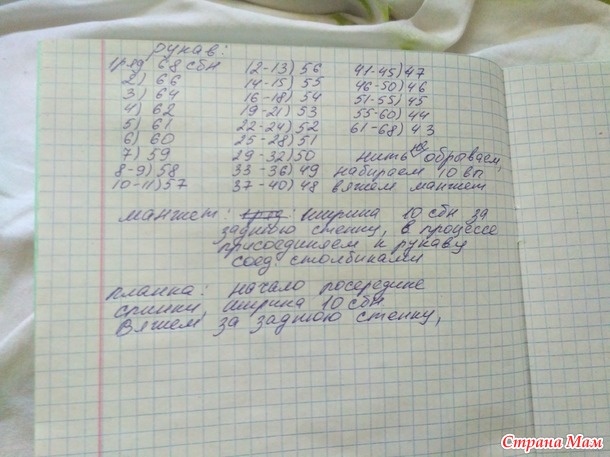 рукав:
1ряд 68 сбн
2) 66
3) 64
4) 62
5) 61
6) 60
7) 59
8-9) 58
10-11) 57
12-13) 56
14-15) 55
16-18) 54
19-21) 53
22-24) 52
25-28) 51
29-32) 50
33-36) 49
37-40) 48
41-45) 47
46-50) 46
51-55) 45
55-60) 44
61-68) 43
нить не обрываем,
набираем 10 вп
вяжем манжет
манжет: : ширина 10 сбн за
заднюю стенку, в процессе
присоединяем к рукаву
соед столбиками
планка: начало посередине
спинки, ширина 10 сбн
Вяжем за заднюю стенку,
Страна Мам